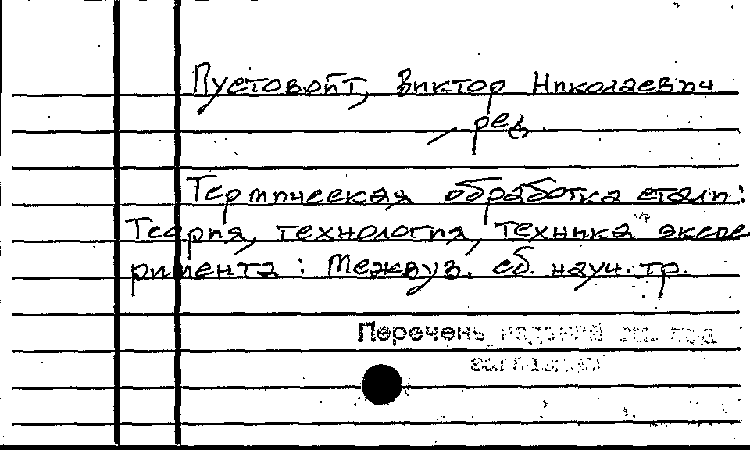 Пустовойт, Виктор Николаевич
ред.
Термическая обработка стали:
Теория, технология, техника экспе
римента: Межвуз. сб. науч. тр.
Перечень изданий см. под
заглавием